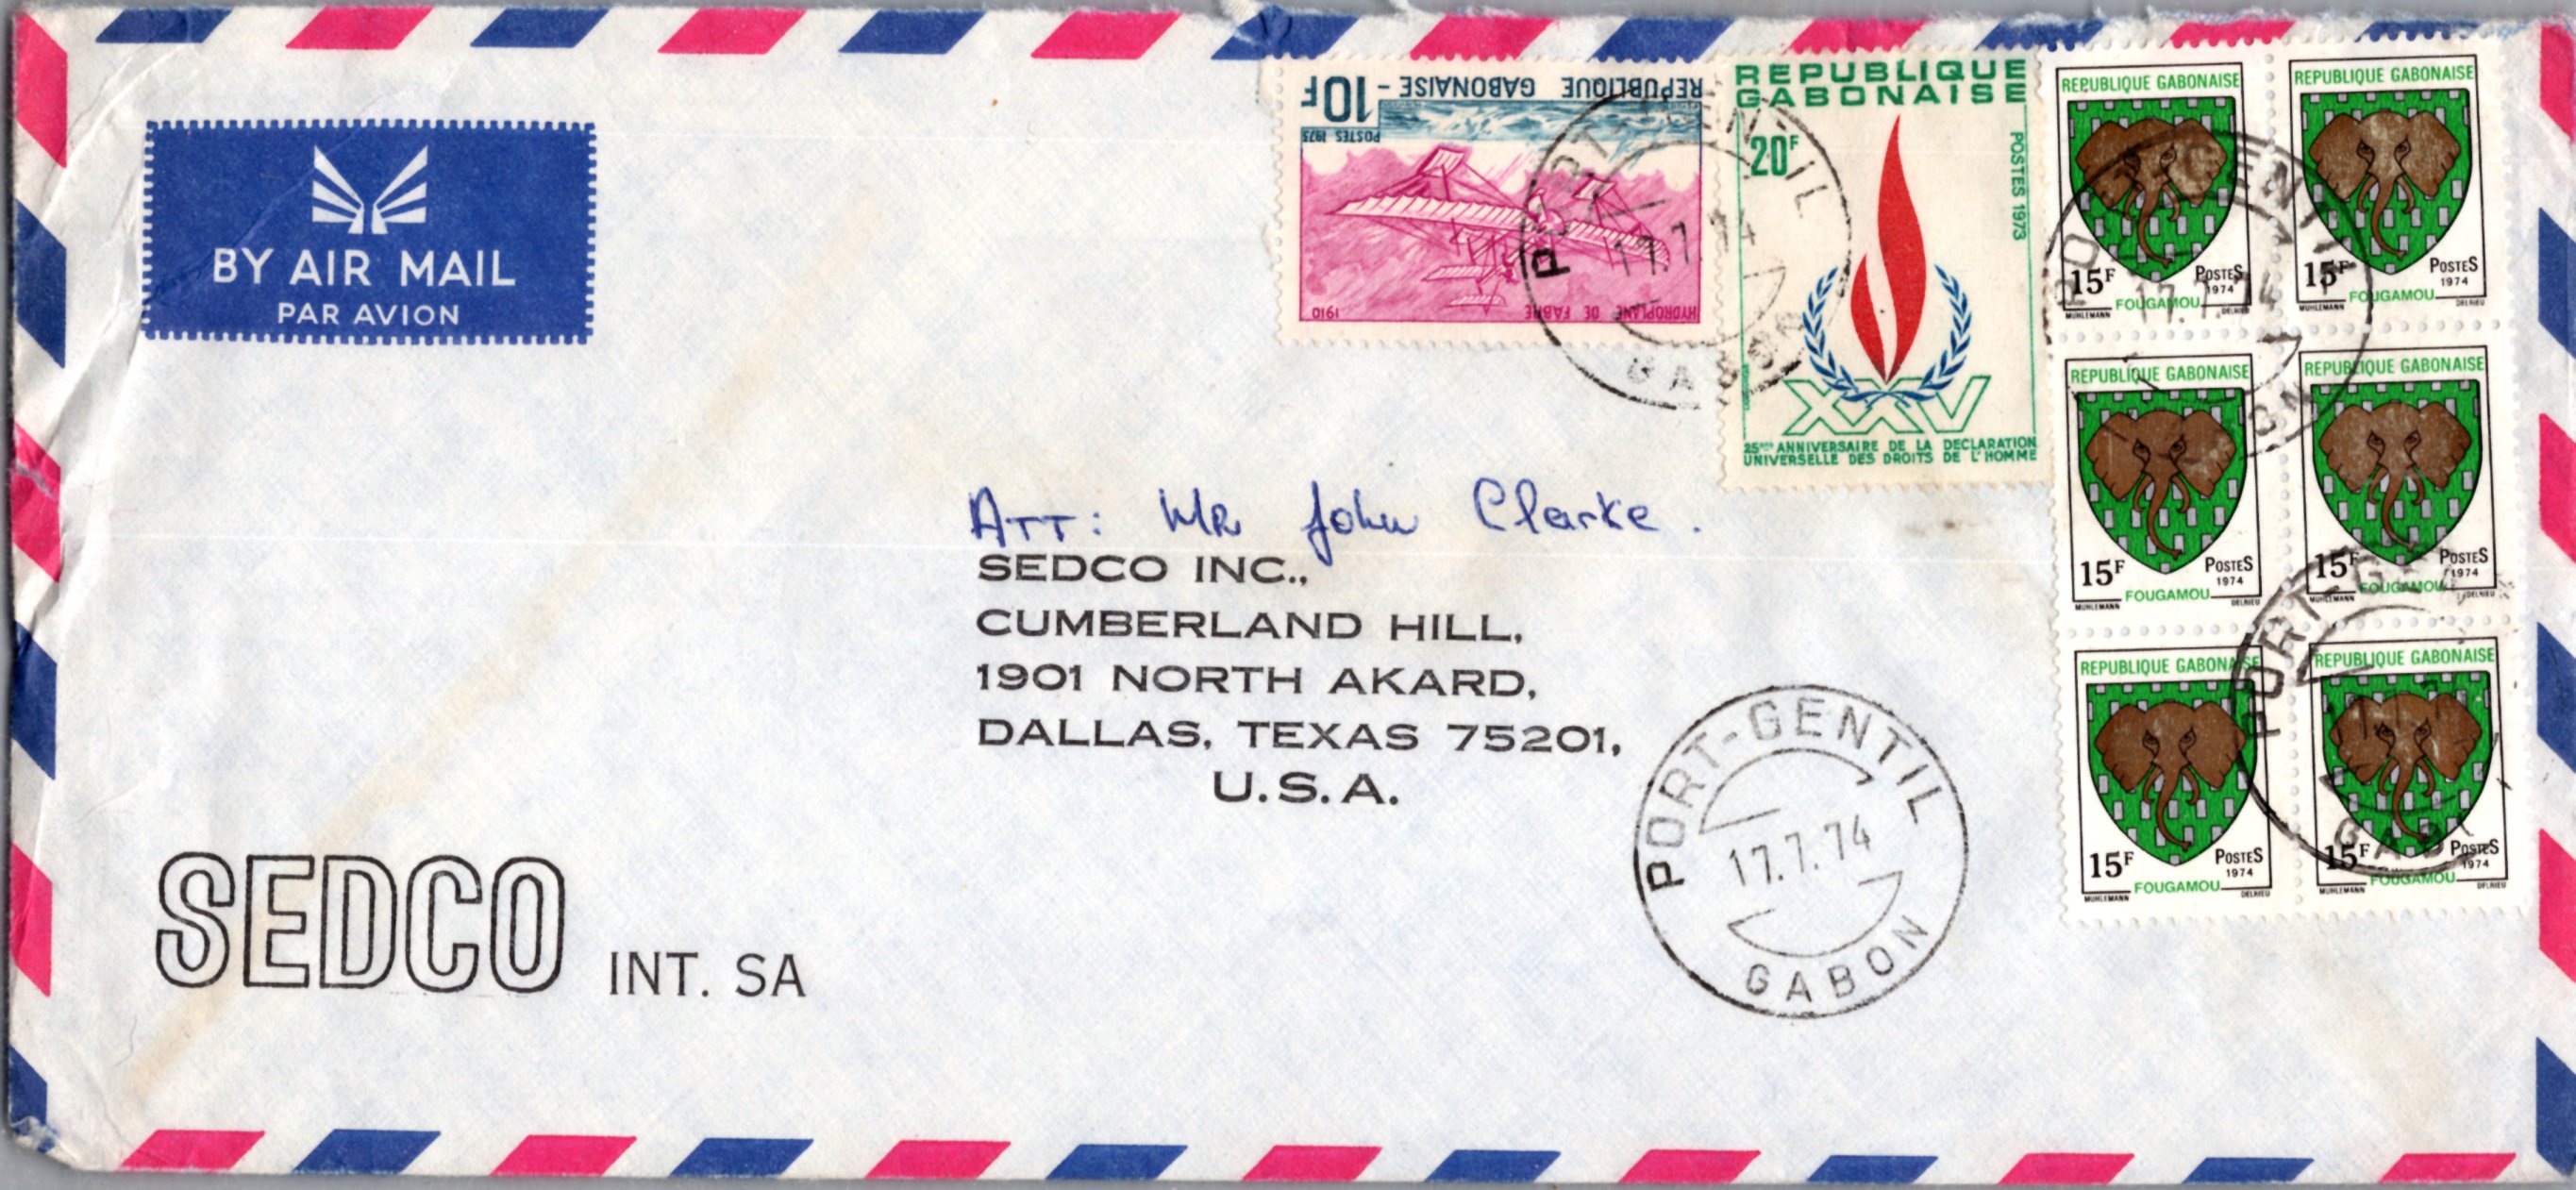 BY AIR MAIL
PAR AVION
REPUBLIQUE GABONAISE - 10F
POSTES 1973
HYDROPLANE DE FABRE 1910
PORT-GENTIL
17.7.74
GABON
REPUBLIQUE
GABONAISE
20F
POSTES 1973
XXV
25ème ANNIVERSAIRE DE LA DECLARATION
UNIVERSELLE DES DROITS DE L'HOMME
REPUBLIQUE GABONAISE
15F POSTES
1974
FOUGAMOU
MUHLEMANN DELRIEU
REPUBLIQUE GABONAISE
15F POSTES
1974
FOUGAMOU
DELRIEU
PORT-GENTIL
17.7.74
GABON
REPUBLIQUE GABONAISE
15F POSTES
1974
FOUGAMOU
MUHLEMANN DELRIEU
REPUBLIQUE GABONAISE
15F POSTES
1974
FOUGAMOU
MUHLEMANN DELRIEU
REPUBLIQUE GABONAISE
15F POSTES
1974
FOUGAMOU
MUHLEMANN DELRIEU
REPUBLIQUE GABONAISE
15F POSTES
1974
FOUGAMOU
MUHLEMANN DELRIEU
PORT-GE
GAB
ATT: MR John Clarke.
SEDCO INC.,
CUMBERLAND HILL,
1901 NORTH AKARD,
DALLAS, TEXAS 75201,
U.S.A.
PORT-GENTIL
17.7.74
GABON
SEDCO INT. SA